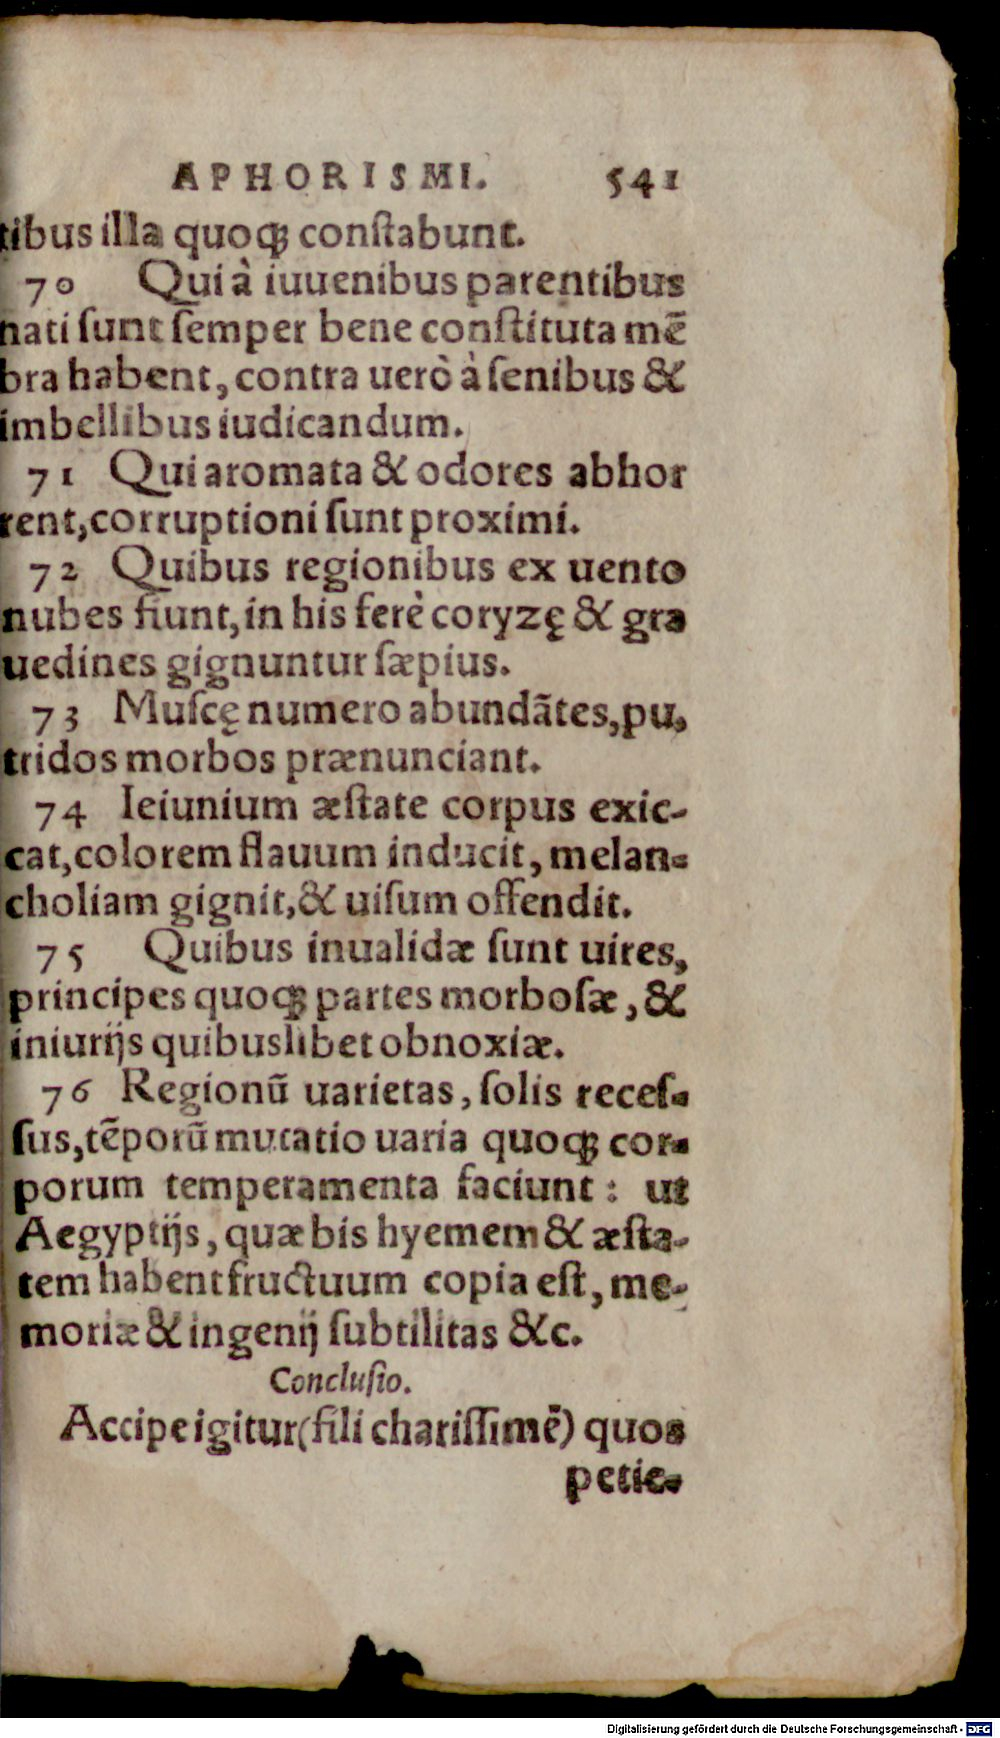 APHORISMI. 541
tibus illa quoqꝫ conſtabunt.
70 Qui à iuuenibus parentibus
nati ſunt ſemper bene conſtituta mẽ
bra habent, contra uerò à ſenibus &
imbellibus iudicandum.
71 Qui aromata & odores abhor
rent, corruptioni ſunt proximi.
72 Quibus regionibus ex uento
nubes fiunt, in his ferè coryzę & gra
uedines gignuntur ſæpius.
73 Muſcę numero abundãtes, pu,
tridos morbos prænunciant.
74 Ieiunium æſtate corpus exic-
cat, colorem flauum inducit, melan-
choliam gignit, & uiſum offendit.
75 Quibus inualidæ ſunt uires,
principes quoqꝫ partes morboſæ, &
iniurijs quibuslibet obnoxiæ.
76 Regionũ uarietas, ſolis receſ-
ſus, tẽporũ mutatio uaria quoqꝫ cor-
porum temperamenta faciunt: ut
Aegyptijs, quæ bis hyemem & æſta-
tem habent fructuum copia eſt, me-
moriæ & ingenij ſubtilitas &c.
Concluſio.
Accipe igitur (fili chariſſimẽ) quos
petie-
Digitalisierung gefördert durch die Deutsche Forschungsgemeinschaft - DFG